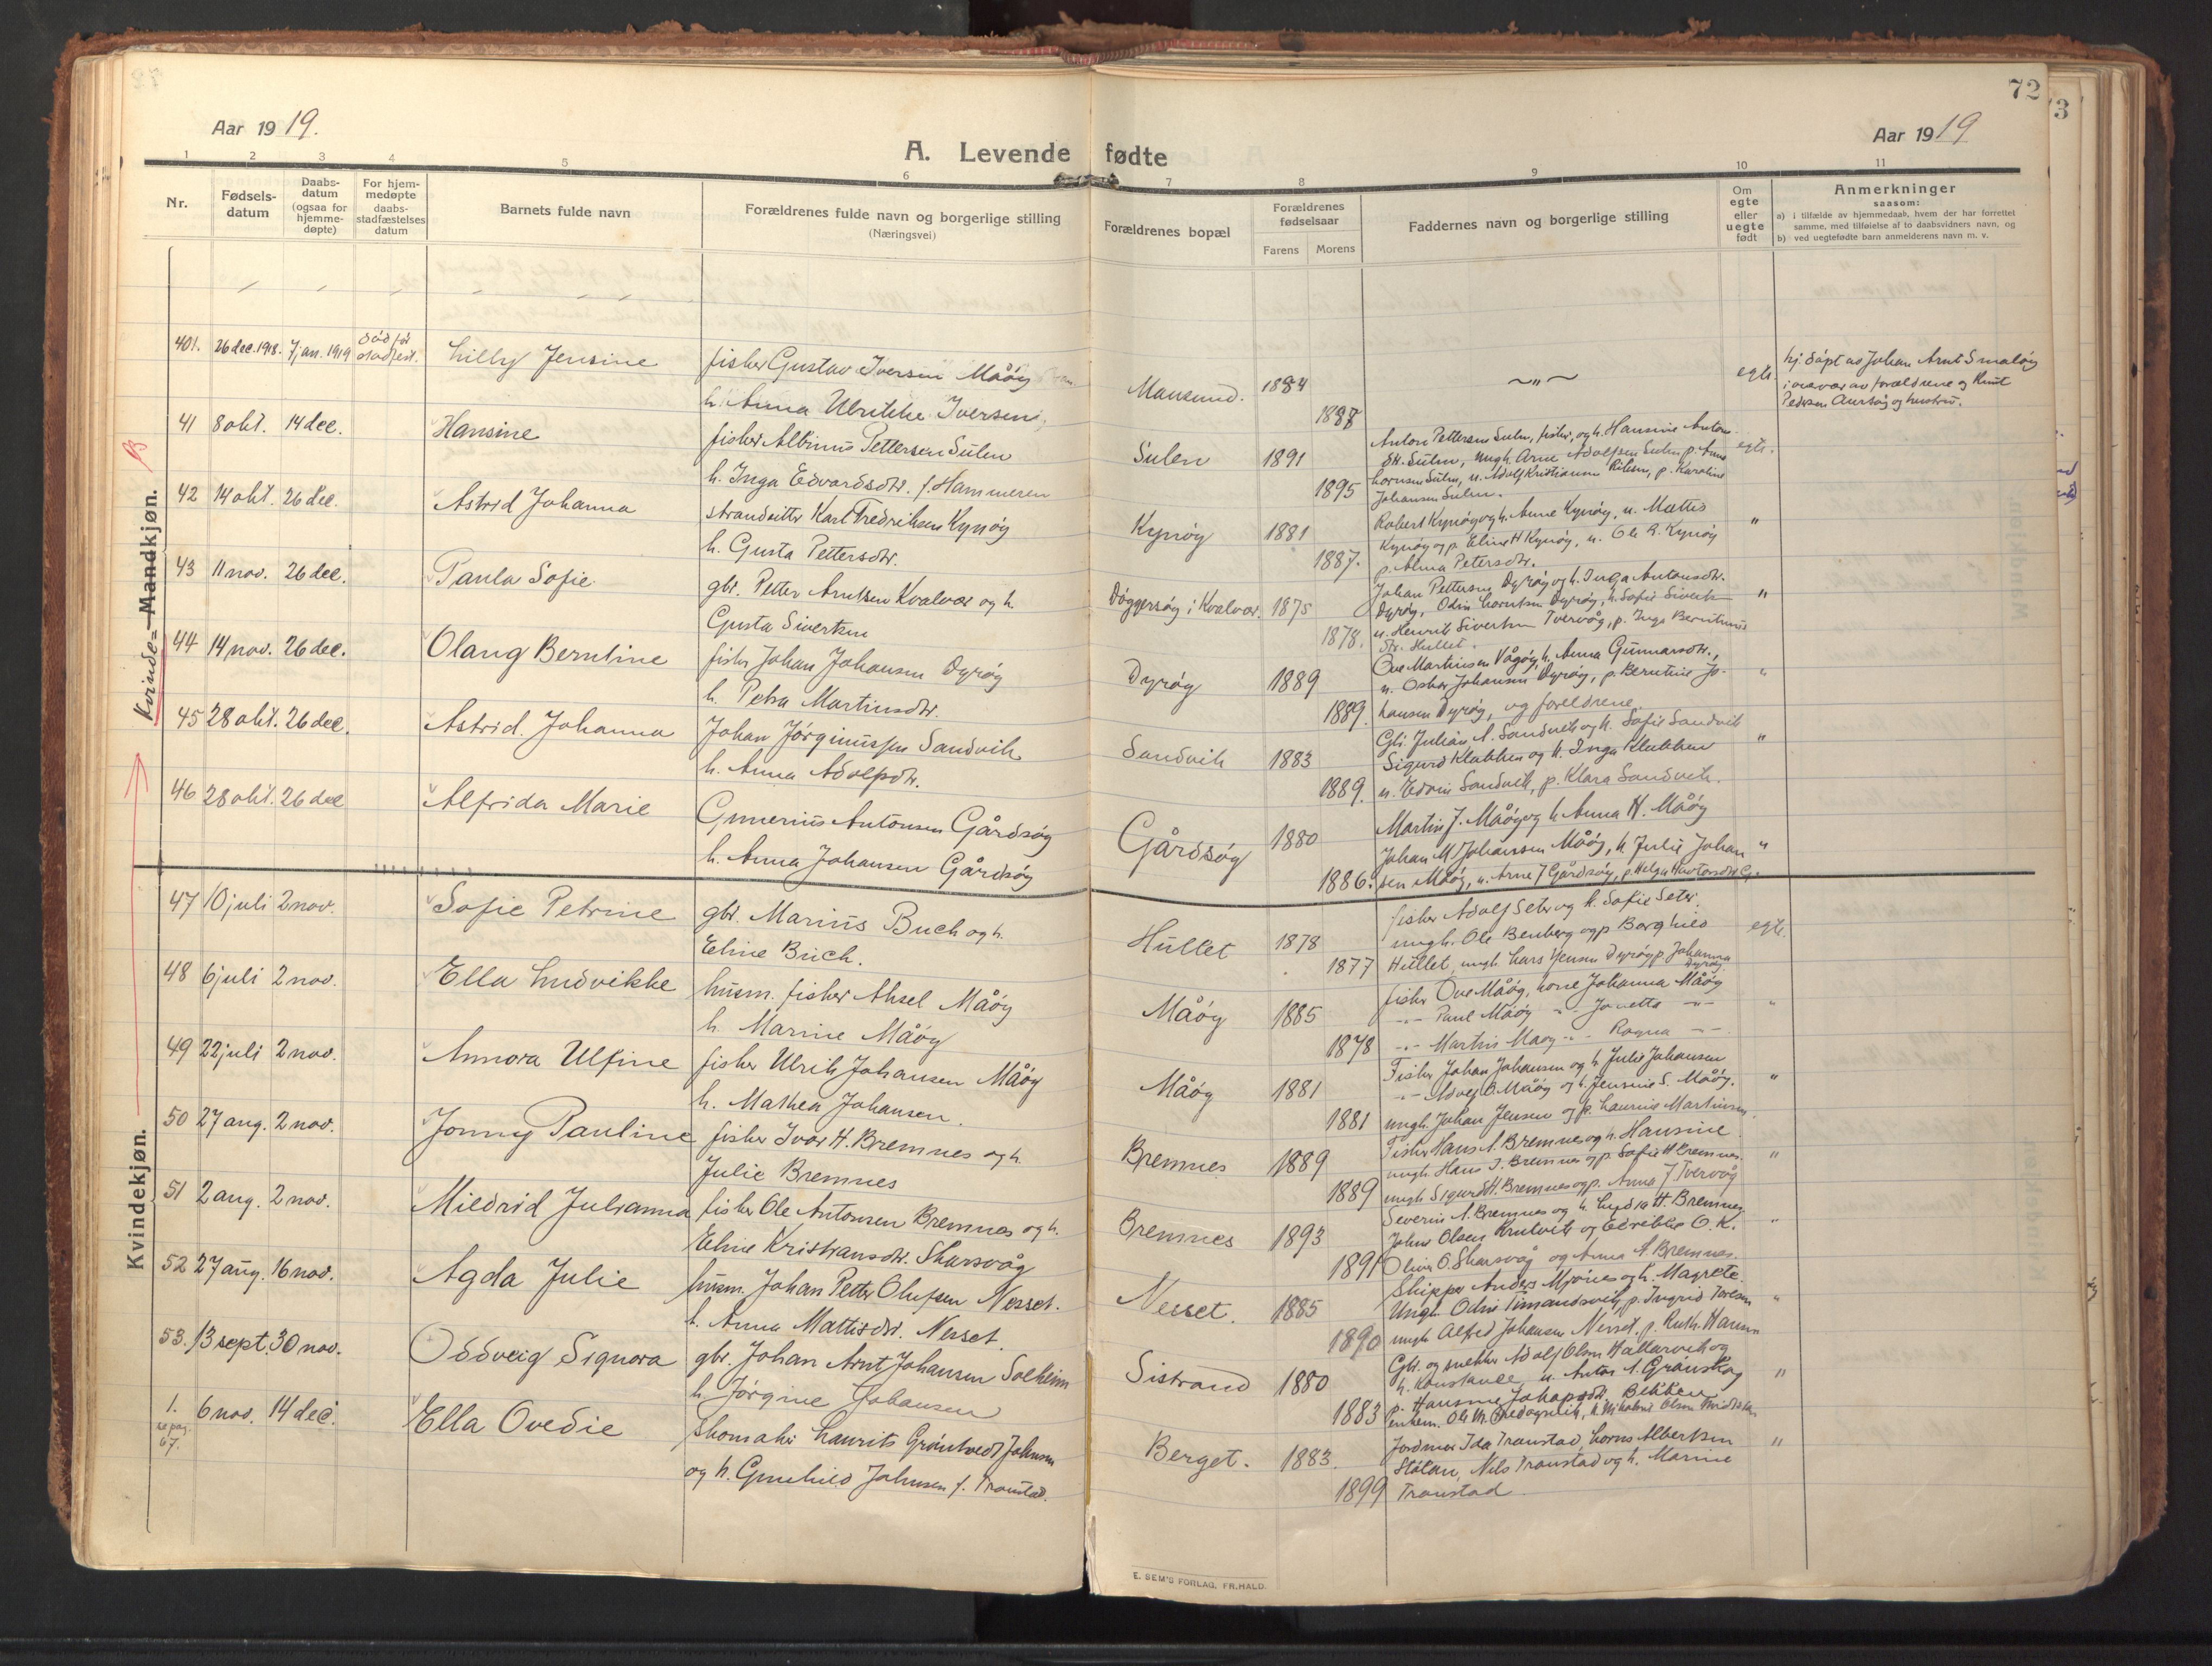 72
Aar 1919.
Aar 1919
A. Levende fødte
1 2 3 4 5 6 7 8 9 10 11
Nr.
Fødsels-
datum
Daabs-
datum
(ogsaa for
hjemme-
døpte)
For hjem-
medøpte
daabs-
stadfæstelses
datum
Barnets fulde navn
Forældrenes fulde navn og borgerlige stilling
(Næringsvei)
Forældrenes bopæl
Forældrenes
fødselsaar
Farens Morens
Faddernes navn og borgerlige stilling
Om
egte
eller
uegte
født
Anmerkninger
saasom:
a) i tilfælde av hjemmedaab, hvem der har forrettet
samme, med tilføielse af to daabsvidners navn, og
b) ved uegtefødte barn anmelderens navn m. v.
Kvinde- Mandkjøn.
Kvindekjøn.
401. 26 dec. 1918. 7 jan. 1919 død før stadfest. Lilly Jensine
fisker Gustav Iversen Måøy
h. Anna Ulrikke Iversen
Mausund. 1884
1887
egte.
hj. døpt av Johan Arnt Smaløy
i overvær av forældrene og Knut
Pedersen Aursøy og hustru.
41 8 okt. 14 dec. Hansine
fisker Albinus Pettersen Sulen
h. Inga Edvardsdtr. f. Hammeren
Sulen 1891
1895
Anton Pettersen Sulen, fisker, og h. Hansine Anton-
dtr. Sulen, ungk. Arne Adolfsen Sulen p. Anna
Johansen Sulen.
egte.
42 14 okt. 26 dec. Astrid Johanna
strandsitter Karl Fredriksen Kynøy
h. Gusta Pettersdtr.
Kynøy 1881
1887.
Robert Kynøy og h. Anne Kynøy, u. Mattis
Kynøy og p. Eline H Kynøy, u. Ole R. Kynøy
p. Anna Petersdtr.
"
43 11 nov. 26 dec. Paula Sofie
gbr. Petter Arntsen Kvalvær og h.
Gusta Sivertsen
Døggersøy i Kvalvær. 1875
1878.
Johan Pettersen Dyrøy og h. Inga Antonsdtr.
u. Henrik Sivertsen Tvervåg, p. Inga Berntines
dtr. Hullet.
"
44 14 nov. 26 dec. Olaug Berntine
fisker Johan Johansen Dyrøy
h. Petra Martinsdtr.
Dyrøy 1889
1889.
Ove Martinsen Vågøy, h. Anna Gunnarsdtr.,
u. Oskar Johansen Dyrøy, p. Berntine Jo-
hansen Dyrøy, og forældrene.
"
45 28 okt. 26 dec. Astrid Johanna
Johan Jørginussen Sandvik
h. Anna Adolfsdtr.
Sandvik 1883
1889.
Gbr. Julian A. Sandvik og h. Sofie Sandvik
Sigurd Klakken og h. Inga Klakken
u. Edvin Sandvik, p. Klara Sandvik.
"
46 28 okt. 26 dec Alfrida Marie
Gunerius Antonsen Gårdsøy
h. Anna Johansen Gårdsøy
Gårdsøy 1880
1886.
Martin J. Måøy og h. Anna H. Måøy
Johan M Johansen Måøy, h Julie Johan
sen Måøy, u. Arne J Gårdsøy, p. Helga
"
47 10 juli 2 nov. Sofie Petrine
gbr. Marius Buch og h.
Eline Buch.
Hullet 1878
1877
fisker Adolf Seter og h. Sofie Seter.
ungk. Ole Benberg og p Borghild
Hullet, ungk. Lars Jensen Dyrøy p. Johanna
Dyrøy
egte.
48 6 juli 2 nov. Ella Ludvikke
husm. fisker Aksel Måøy
h. Marine Måøy
Måøy 1885
1878
fisker Ove Måøy, kone Johanna Måøy
-"- Paul Måøy -"- Jonetta -"-
-"- Martin Maøy -"- Ragna -"-
"
49 22 juli 2 nov. Annora Ulfine
fisker Ulrik Johansen Måøy
h. Mathea Johansen.
Måøy 1881
1881
Fisker Johan Johansen og h. Julie Johansen
O. Måøy og h. Jensine S. Måøy.
ungk. Johan Jensen og p. Laurine Martinsen.
"
50 27 aug. 2 nov. Jonny Pauline
fisker Ivar H. Bremnes og h.
Julie Bremnes
Bremnes 1889
1889
Fisker Hans A. Bremnes og h. Hansine
ungk. Hans J. Bremnes og p. Sofie H Bremnes.
ungk Sigurd H. Bremnes og p. Anna J Tvervåg
"
51 2 aug. 2 nov. Mildrid Julianna
fisker Ole Antonsen Bremnes og h.
Eline Kristiansdtr. Skarsvåg
Bremnes 1893
1891
Severin A. Bremnes og h. Lydia H. Bremnes
Johan Olsen og O. K.
Oliver O. Skarsvåg og Anna A. Bremnes.
"
52 27 aug. 16 nov. Agda Julie
husm. Johan Petter Olufsen Nesset.
h. Anna Mattisdtr. Nesset.
Nesset. 1885
1890
Skipper Anders Mjønes og h. Magrete.
Ungk. Odin p. Ingrid
ungk Alfred Johansen Nesset. p. Ruth Hansen
"
53. 13 sept. 30 nov. Oddveig Signora
gbr. Johan Arnt Johansen Solheim
h. Jørgine Johansen
Sistrand 1880
1883
Gbr. og snekker Adolf Olsen Hallarvik og
h. Konstanse, u. Anton A. Grønskag
p. Hansine Bekken
"
1. 6 nov. 14 dec. Ella Ovedie
se pag.
67.
skomaker Laurits Grøntvedt Johnsen
og h. Gunhild Johnsen f. Transtad.
Berget. 1883.
1899
Jordmor Ida Transtad, Lorns Albertsen
Stølan, Nils Transtad og h. Marine
Transtad
"
E. SEM'S FORLAG, FR.HALD.